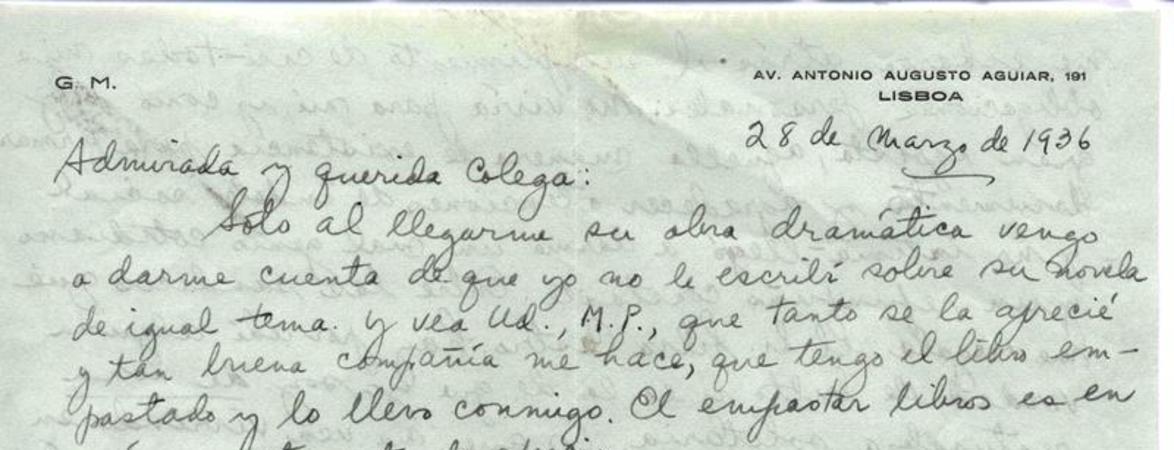 G. M.
AV. ANTONIO AUGUSTO AGUIAR, 191
LISBOA
28 de Marzo de 1936
Admirada y querida Colega:
Solo al llegarme su obra dramática vengo
a darme cuenta de que yo no le escribí sobre su novela
de igual tema. Y vea Ud., M.P., que tanto se la aprecié
y tan buena compañía me hace, que tengo el libro em-
pastado y lo llevo conmigo. El empastar libros es en